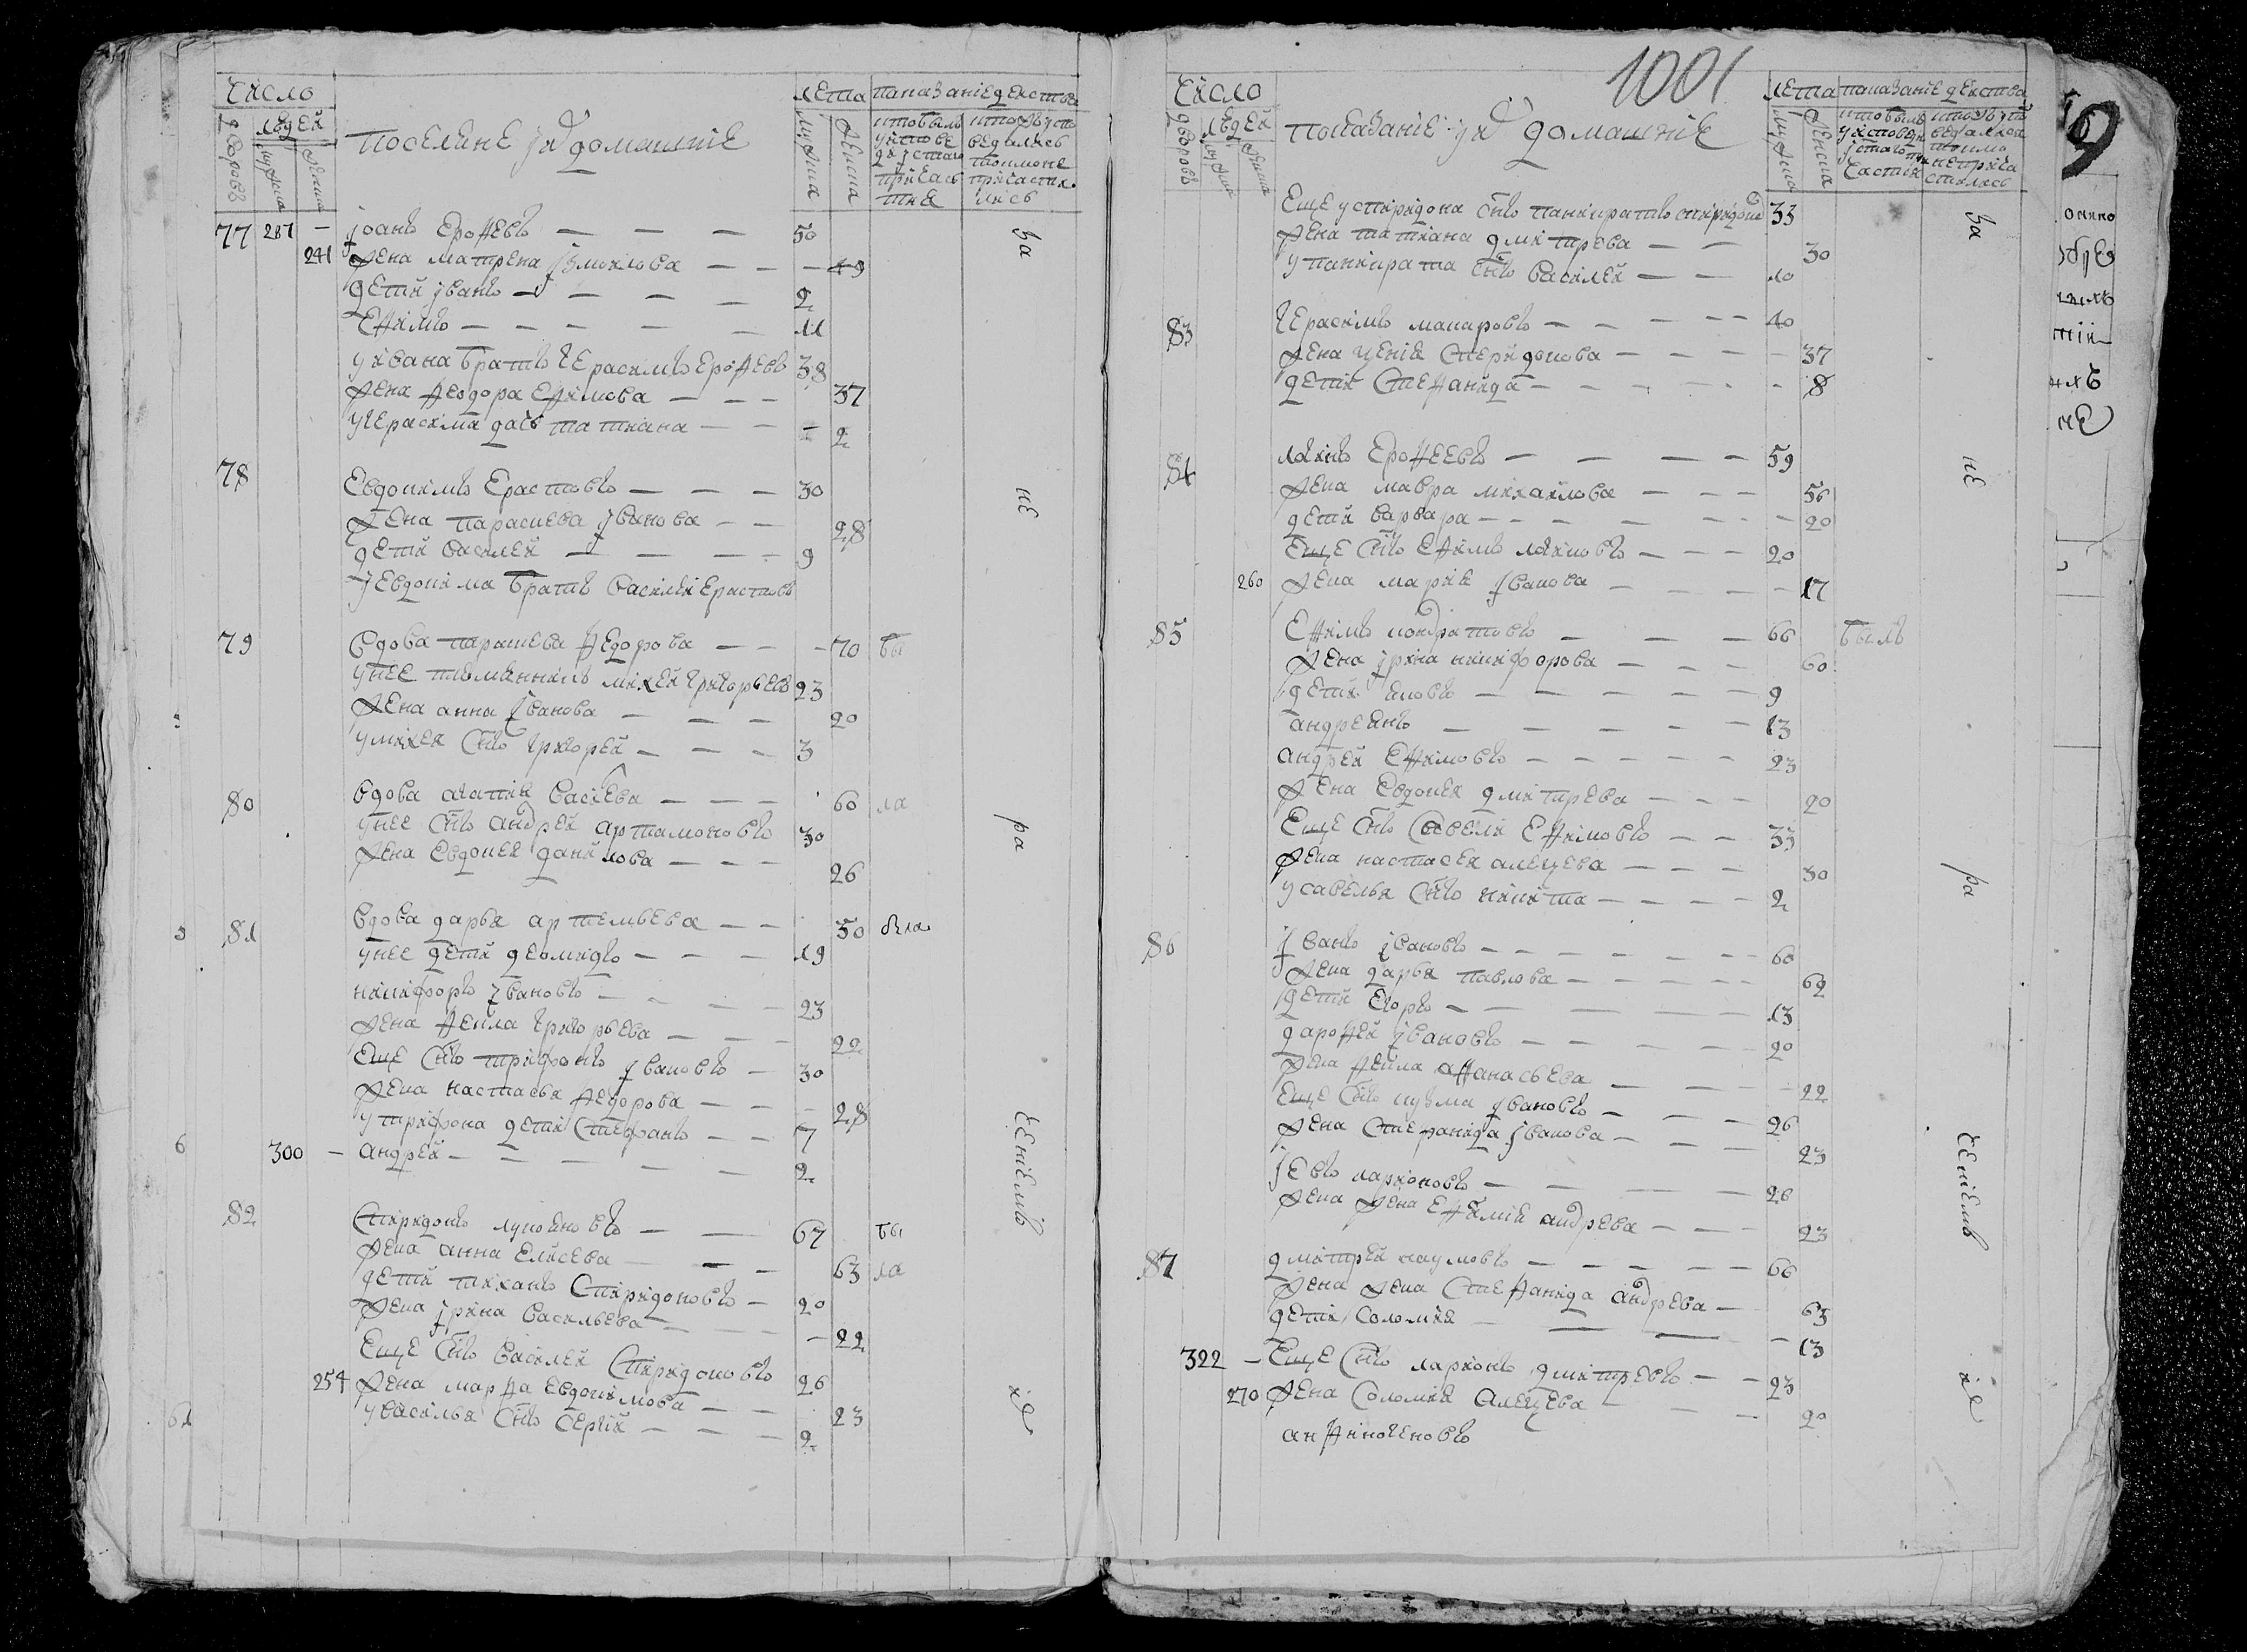 Число
лета показание действа
дворовъ
людей
мужска
женска
поселяне и ихъ домашние
мужска
женска
77 287 - иоанъ ерофевъ - - - 50
241 жена матрена измоилова - - - 49
дети иванъ - - - - 2
ефимъ - - - - - - 11
у ивана братъ герасимъ ерофевъ 38
жена феодора ефимова - - - 37
у герасима дочь татиана - - - 2
78 евдокимъ ерастовъ - - - 30
жена параскева иванова - - 28
дети василей - - - - 9
у евдокима братъ василий ерастовъ
79 вдова параскева федорова - - - 70 бы
у нее племянникъ михей григорьевъ 23
жена анна иванова - - - 20
у михея снъ григорей - - - 3
80 вдова агапия васиева - - - 60 ла
у нее снъ андрей артамоновъ 30
жена евдокея данилова - - - 26
81 вдова дарья артемьева - - 50 была
у нее дети деомидъ - - - 19
никифоръ ивановъ - - - - 23
жена фекла григорьева - - - 20
еще снъ трифонъ ивановъ - 30
жена настасья федорова - - - 28
у трифона дети стефанъ - - 7
300 - андрей - - - - - - 2
82 спиридонъ лукояновъ - - 67 бы
жена анна елисева - - - 63 ла
дети тиханъ спиридоновъ - 20
жена ирина васильева - - - 22
еще снъ василей спиридоновъ 26
254 жена марфа евдокимова - - 23
у василья снъ сергий - - - 2
за
не
ра
чениемъ
ихъ
1001
Число
лета показание действа
дворовъ
людей
мужска
женска
показание ихъ домашние
мужска
женска
еще у спиридона снъ панкратъ спиридона 33
жена татиана дмитрева - - 30
у панкрата снъ василей - - 10
83 герасимъ макаровъ - - - - - 40
жена ксения сперидонова - - - - 37
дети стефанида - - - - - - 8
84 лакинъ ерофеевъ - - - - 59
жена мавра михаилова - - - 56
дети варвара - - - - - - - 20
еще снъ ефимъ лакиновъ - - - 20
260 жена мария иванова - - - - 17
85 ефимъ кондратовъ - - - 66 былъ
жена ирина никифорова - - - 60
дети иковъ - - - - - - 9
андреянъ - - - - - - 13
андрей ефимовъ - - - - - 23
жена евдокея дмитрева - - - 20
еще снъ савели ефимовъ - - 33
жена настасея алекцева - - - 30
у савелья снъ никита - - - - 2
86 иванъ ивановъ - - - - - - - 60
жена дарья павлова - - - - - 62
дети егоръ - - - - - 13
дарофей ивановъ - - - - - 20
жена фекла афанасьева - - - 22
еще снъ кузма ивановъ - - - - 26
жена стеранида иванова - - - - 23
иевъ ларионовъ - - - - 26
жена жена ефимия андрева - - - 23
87 дмитрей наумовъ - - - - - 66
жена жена стефанида андрева - 63
дети соломия - - - - 13
322 - еще снъ ларионъ дмитревъ - - 23
270 жена соломия алекцева - - - 20
анфиногеновъ
за
не
ра
чениемъ
ихъ